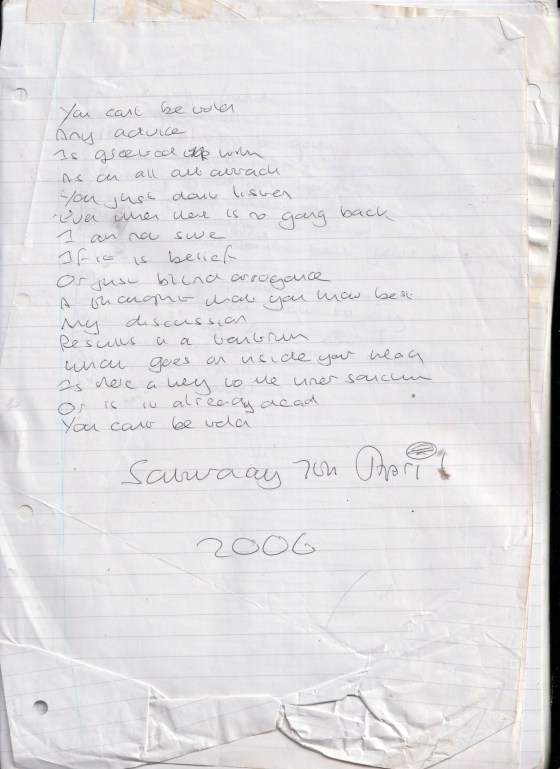 You cant be told
Any advice
Is greeted with
As an all out attack
You just dont listen
Even when there is no going back
I am not sure
If it is belief
Or just blind arrogance
A thought that you know best
Any discussion
Results in a tantrum
What goes on inside your head
Is there a key to the inner sanctum
Or is it already dead
You cant be told
Saturday 7th April
2006